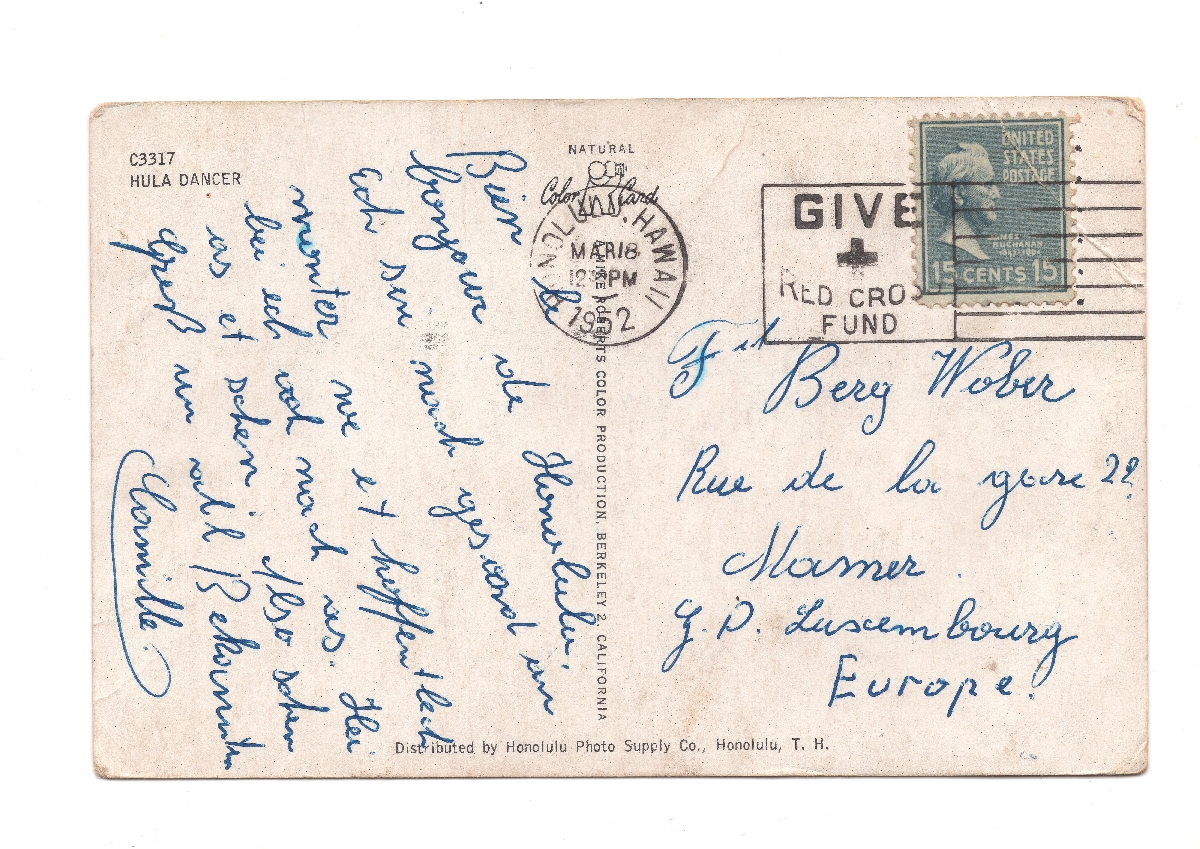 C3317
HULA DANCER
NATURAL
Color Card
HONOLULU, HAWAII
MAR 18
PM
1952
GIVE
RED CROSS
FUND
UNITED
STATES
POSTAGE
JAMES
BUCHANAN
15 CENTS 15
Bien le
bonjour de Honolulu.
Ech sin noch gesond an
monter we et hoffentlech
bei ech och nach as. Hei
as et schen Also schen
Greß un all Bekannten
Camille.
ROBERTS COLOR PRODUCTION, BERKELEY 2, CALIFORNIA
Berg Wober
Rue de la gare 22
Mamer
G. D. Luxembourg
Europe.
Distributed by Honolulu Photo Supply Co., Honolulu, T. H.